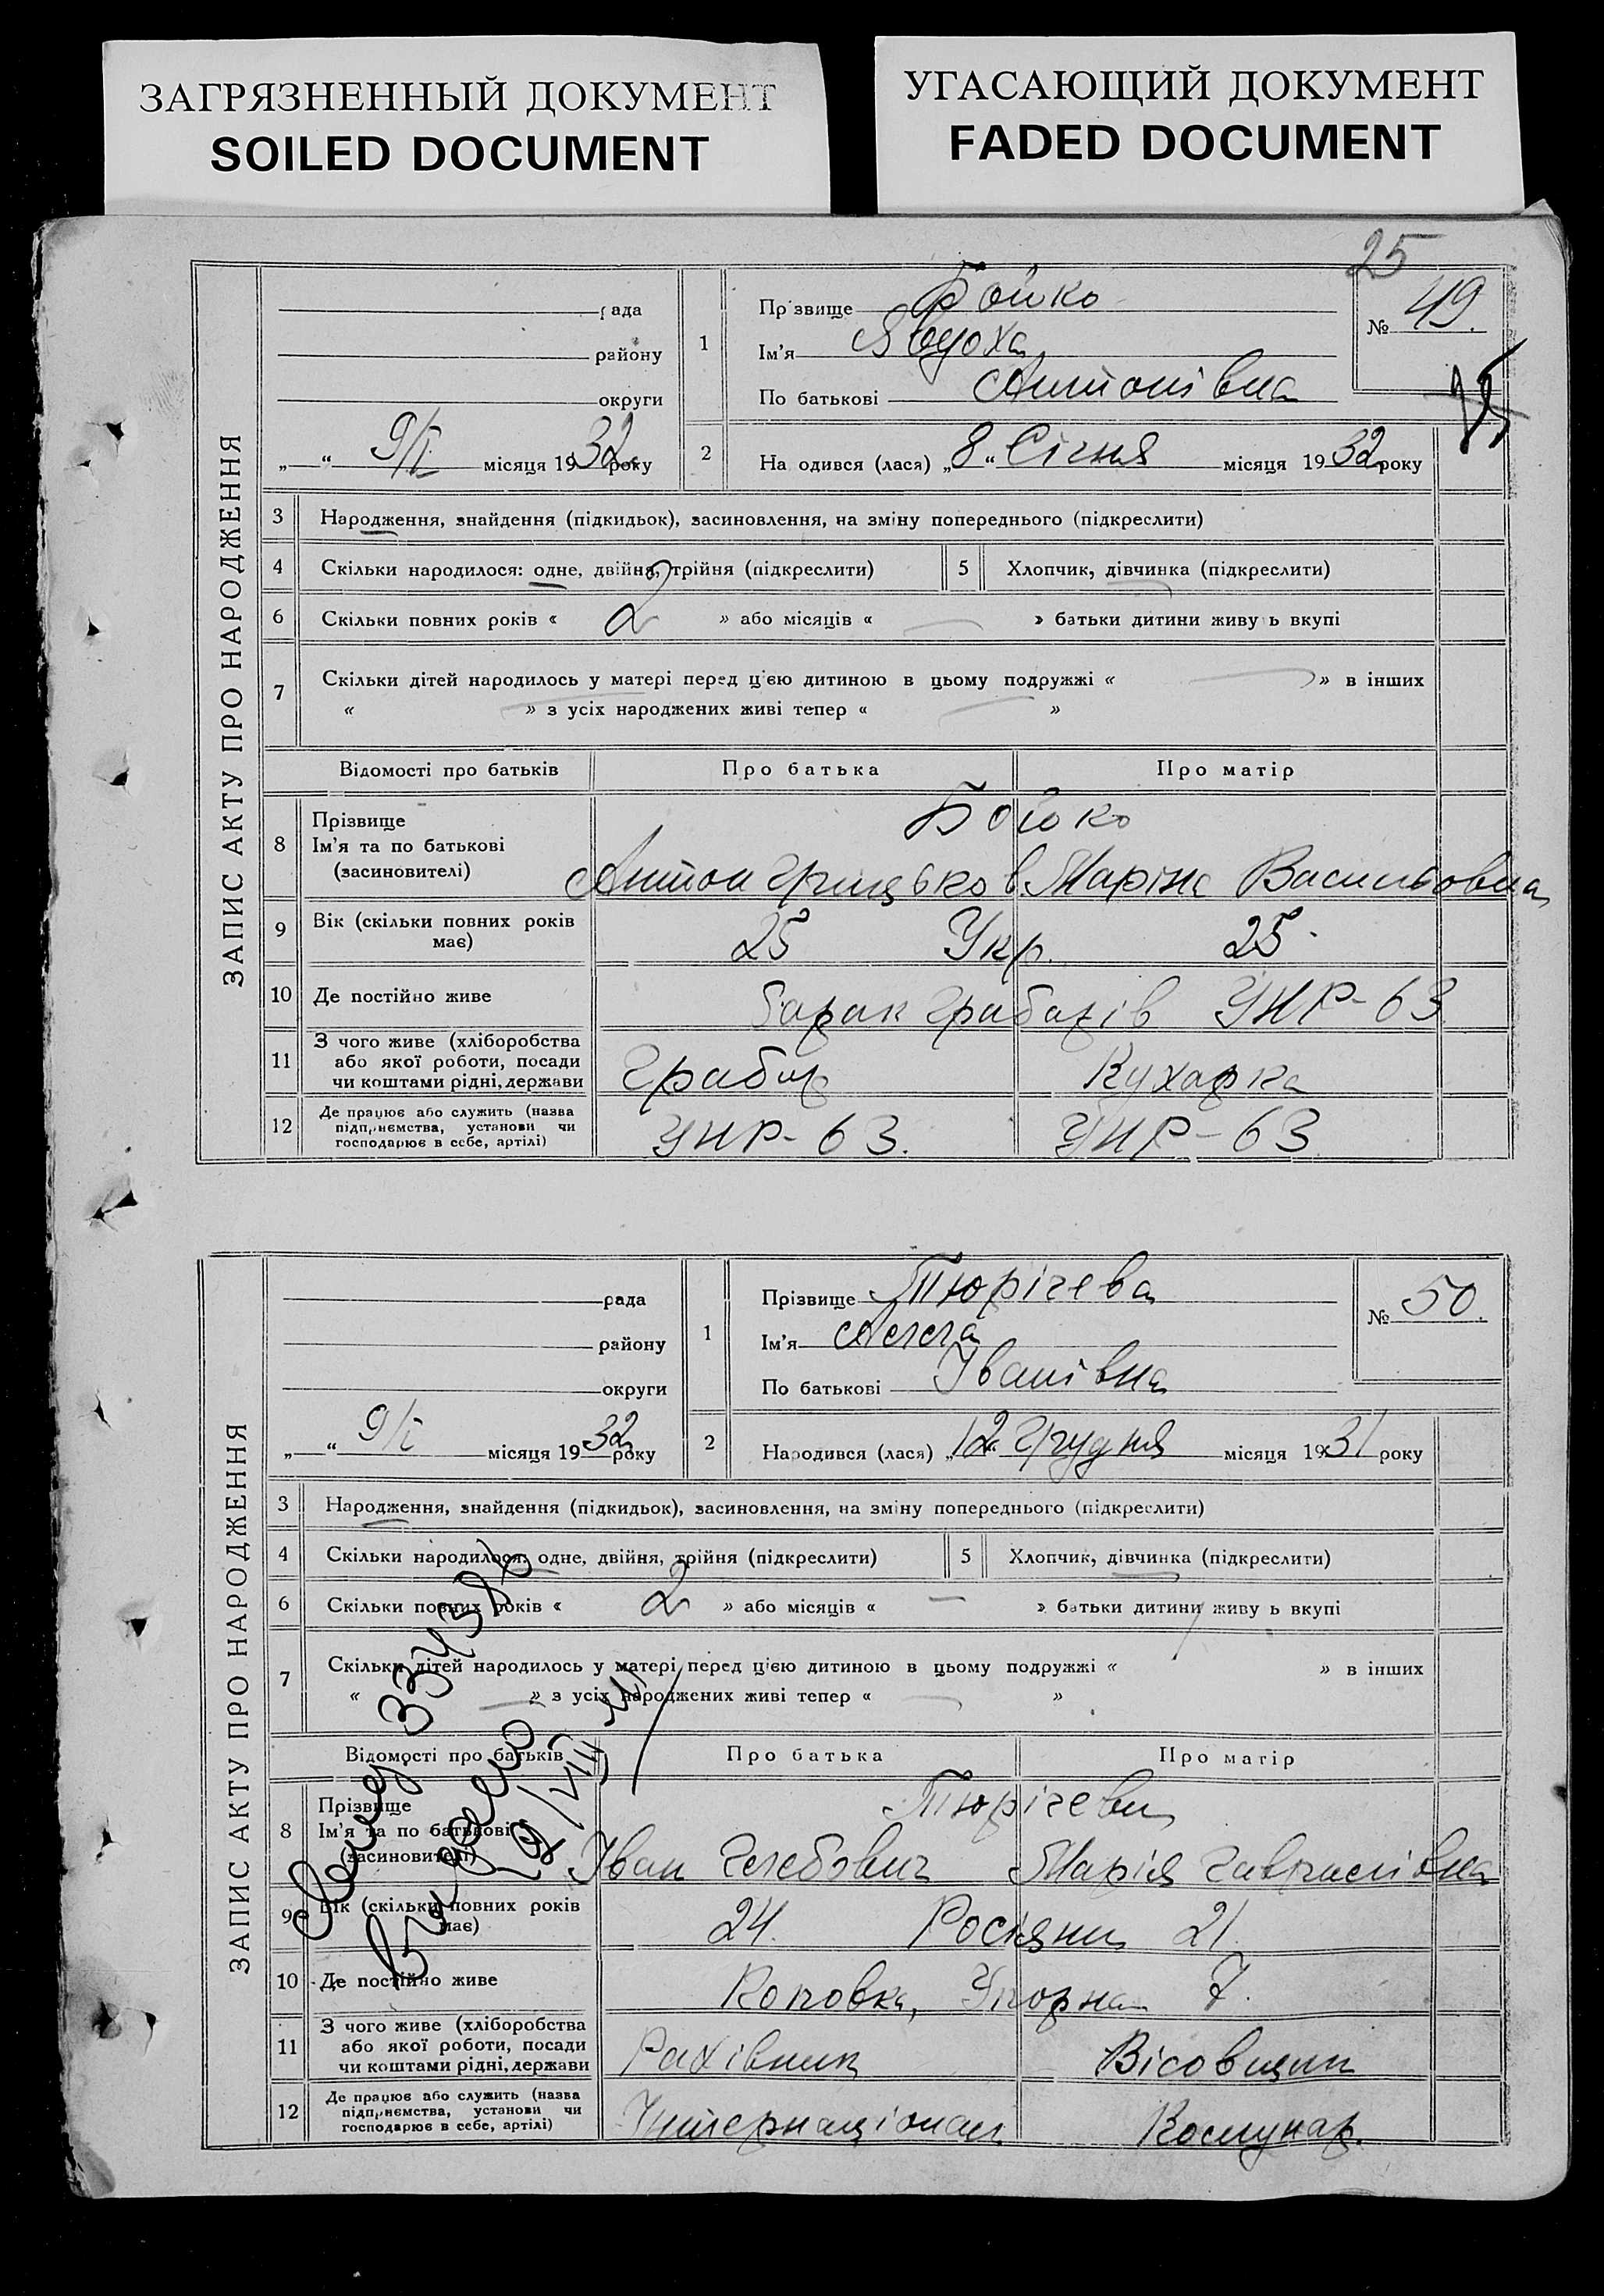 ЗАГРЯЗНЕННЫЙ ДОКУМЕНТ
SOILED DOCUMENT
УГАСАЮЩИЙ ДОКУМЕНТ
FADED DOCUMENT
25
ЗАПИС АКТУ ПРО НАРОДЖЕННЯ
рада
району
округи
„ “ 9/I місяця 1932 року
1
Прізвище Бойко
Ім'я Явдоха
По батькові Антонівна
№ 49.
2 На одився (лася) „8“ Січня місяця 1932 року
3 Народження, знайдення (підкидьок), засиновлення, на зміну попереднього (підкреслити)
4 Скільки народилося: одне, двійня, трійня (підкреслити) 5 Хлопчик, дівчинка (підкреслити)
6 Скільки повних років « 2 » або місяців « — » батьки дитини живу ь вкупі
7 Скільки дітей народилось у матері перед цією дитиною в цьому подружжі « — » в інших
« — » з усіх народжених живі тепер « — »
Відомості про батьків Про батька Про матір
8 Прізвище
Ім'я та по батькові
(засиновителі)
Бойко
Антон Грицьков Марина Васильовна
9 Вік (скільки повних років має) 25 Укр. 25.
10 Де постійно живе барак Грабарів УНР-63
11 З чого живе (хліборобства
або якої роботи, посади
чи коштами рідні, держави
Грабар Кухарка
12 Де працює або служить (назва
підприємства, установи чи
господарює в себе, артілі)
УНР-63. УНР-63
ЗАПИС АКТУ ПРО НАРОДЖЕННЯ
рада
району
округи
„ “ 9/I місяця 1932 року
1
Прізвище Тюрічева
Ім'я
По батькові Іванівна
№ 50.
2 Народився (лася) „12“ Грудня місяця 1931 року
3 Народження, знайдення (підкидьок), засиновлення, на зміну попереднього (підкреслити)
4 Скільки народилося: одне, двійня, трійня (підкреслити) 5 Хлопчик, дівчинка (підкреслити)
6 Скільки повних років « 2 » або місяців « — » батьки дитини живу ь вкупі
7 Скільки дітей народилось у матері перед цією дитиною в цьому подружжі « » в інших
« — » з усіх народжених живі тепер « — »
Відомості про батьків Про батька Про матір
8 Прізвище
Ім'я та по батькові
(засиновителі)
Тюрічеви
Іван Марія
9 Вік (скільки повних років має) 24. Росіяни 21.
10 Де постійно живе 7.
11 З чого живе (хліборобства
або якої роботи, посади
чи коштами рідні, держави
Рахівник Вісовщик
12 Де працює або служить (назва
підприємства, установи чи
господарює в себе, артілі)
Інтернаціонал Комунар.